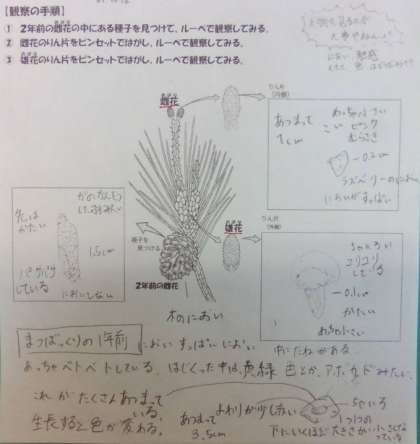 【観察の手順】
① 2年前の雌花の中にある種子を見つけて、ルーペで観察してみる。
2 雌花のりん片をピンセットではがし、ルーペで観察してみる。
3 雄花のりん片をピンセットではがし、ルーペで観察してみる。
雌花
りんぺん
(外側)
あつまって
1cm
めっちゃ小さい
こい ピンク
むらさき
0.2cm
ラズベリーのにおい
においがすっぱい
先は
かたい
1.5cm
パサパサ
している
においしない
種子を
見つける
雄花
2年前の雌花
りんぺん
(外側)
ちゃいろい
コリコリ
している
0.1cm
かたい
めっちゃ小さい
木のにおい
中にたねがある。
まつぼっくりの1年前
におい すっぱいにおい
めっちゃベトベトしている。はじくった中は、黄緑色とか、アボカドみたい。
これがたくさんあつまって
いる。
生長すると色が変わる。
あつまって
3.5cm
まわりが少し赤い
ちゃいろ
1つ1つの
下にいくほど大きさが小さくなっていく